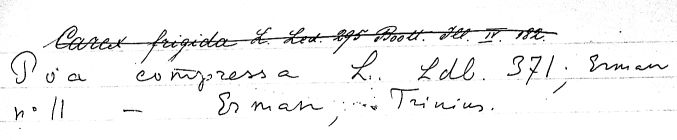 Carex frigida L. Led. 295 Boott. Ill. IV. 182.
Poa compressa L. Ldb. 371; Erman
nº 11 — Erman, Trinius.